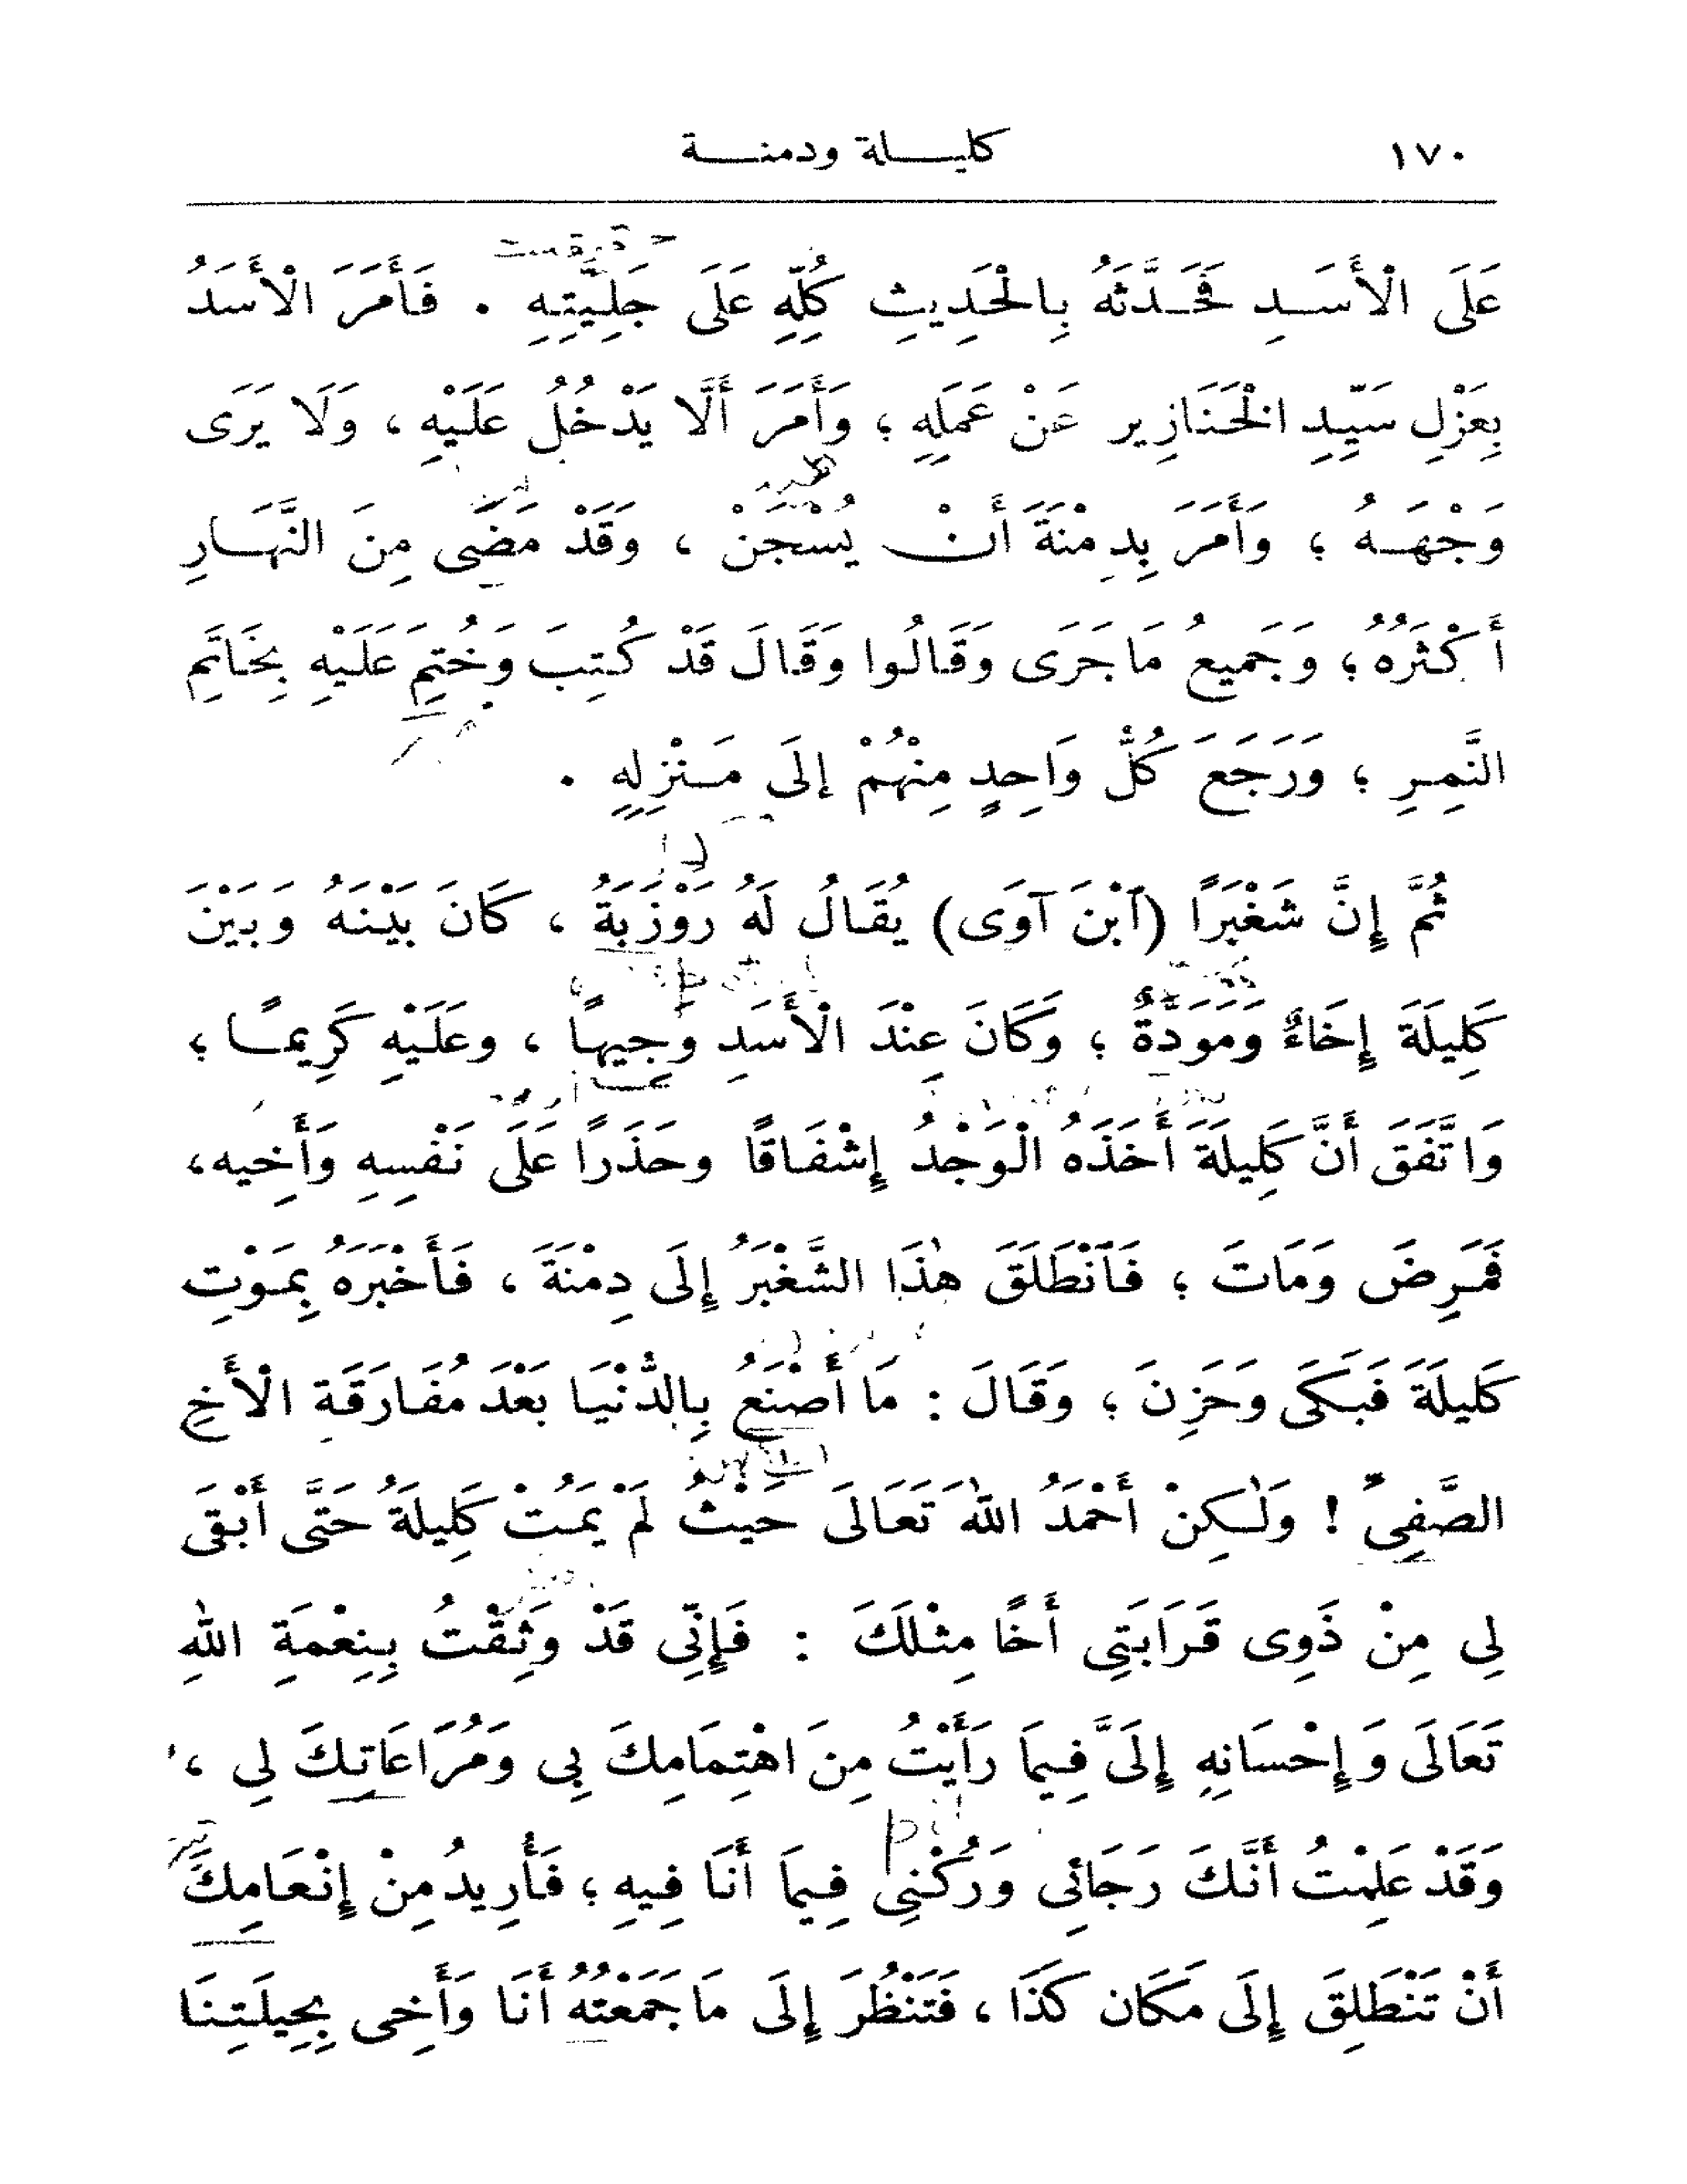 ١٧٠ كليلة ودمنة
عَلَى الْأَسَدِ فَحَدَّثَهُ بِالْحَدِيثِ كُلِّهِ عَلَى جَلِيَّتِهِ . فَأَمَرَ الْأَسَدُ
بِعَزْلِ سَيِّدِ الْخَنَازِير عَنْ عَمَلِهِ ؛ وَأَمَرَ أَلَّا يَدْخُلُ عَلَيْهِ ، وَلَا يَرَى
وَجْهَهُ ؛ وَأَمَرَ بِدِمْنَةَ أَنْ يُسْجَنَ ، وَقَدْ مَضَى مِنَ النَّهَارِ
أَكْثَرُهُ ؛ وَجَمِيعُ مَا جَرَى وَقَالُوا وَقَالَ قَدْ كُتِبَ وَخُتِمَ عَلَيْهِ بِخَاتَمِ
النَّمِرِ ؛ وَرَجَعَ كُلُّ وَاحِدٍ مِنْهُمْ إلَى مَنْزِلِهِ .
ثُمَّ إِنَّ شَغْبَرًا (ٱبْنَ آوَى) يُقَالُ لَهُ رَوْزَبَةُ ، كَانَ بَيْنَهُ وَبَيْنَ
كَلِيلَةَ إِخَاءٌ وَمَوَدَّةٌ ؛ وَكَانَ عِنْدَ الْأَسَدِ وَجِيهاً ، وعَلَيْهِ كَرِيمًا ؛
وَاتَّفَقَ أَنَّ كَلِيلَةَ أَخَذَهُ الْوَجْدُ إِشْفَاقًا وحَذَرًا عَلَى نَفْسِهِ وَأَخِيه،
فَمَرِضَ وَمَاتَ ؛ فَٱنْطَلَقَ هٰذَا الشَّغْبَرُ إِلَى دِمْنَةَ ، فَأَخْبَرَهُ بِمَوْتِ
كَلِيلَةَ فَبَكَى وَحَزِنَ ؛ وَقَالَ : مَا أَصْنَعُ بِالدُّنْيَا بَعْدَ مُفَارَقَةِ الْأَخِ
الصَّفِىِّ ! وَلٰكِنْ أَحْمَدُ اللهَ تَعَالَى حَيْثُ لَمْ يَمُتْ كَلِيلَةُ حَتَّى أَبْقَى
لِى مِنْ ذَوِى قَرَابَتِى أَخًا مِثْلَكَ : فَإِنِّى قَدْ وَثِقْتُ بِنِعْمَةِ اللهِ
تَعَالَى وَإِحْسَانِهِ إِلَىَّ فِيمَا رَأَيْتُ مِنَ اهْتِمَامِكَ بِى وَمُرَاعَاتِكَ لِى ،
وَقَدْ عَلِمْتُ أَنَّكَ رَجَائِى وَرُكْنِى فِيمَا أَنَا فِيهِ ؛ فَأُرِيدُ مِنْ إِنْعَامِكَ
أَنْ تَنْطَلِقَ إِلَى مَكَان كَذَا ، فَتَنْظُرَ إِلَى مَا جَمَعْتُهُ أَنَا وَأَخِى بِحِيلَتِنَا